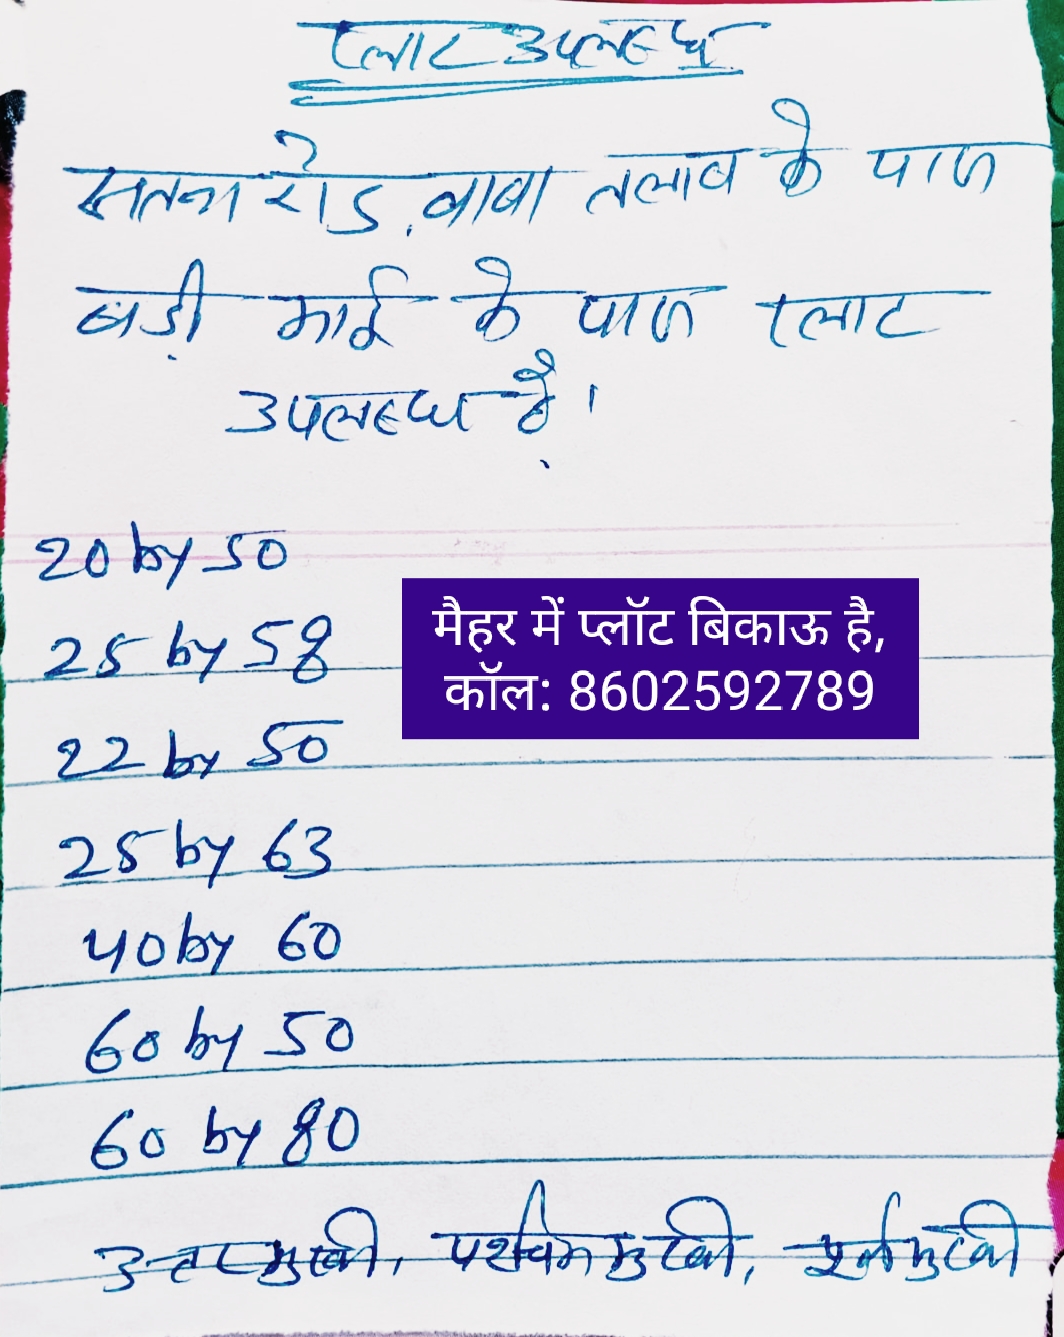 प्लाट उपलब्ध
सतना रोड, बाबा तलाव के पास
बड़ी माई के पास प्लाट
उपलब्ध है।
20 by 50
25 by 58
मैहर में प्लॉट बिकाऊ है,
कॉल: 8602592789
22 by 50
25 by 63
40 by 60
60 by 50
60 by 80
उत्तरमुखी, पश्चिममुखी, पूर्वमुखी